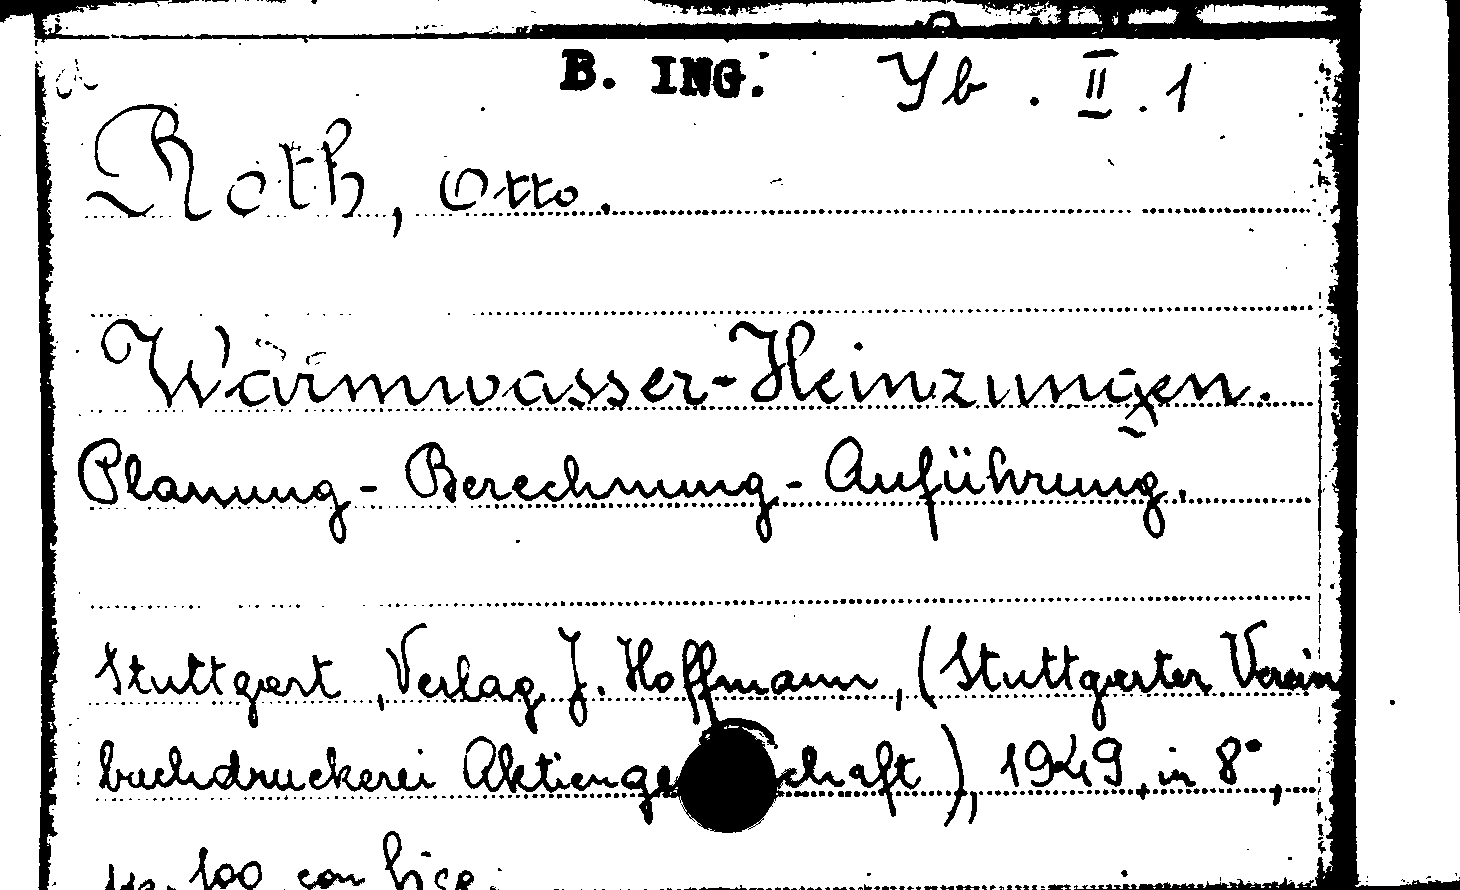 B. ING. Yb. II. 1
Roth, Otto.
Wärmwasser-Heinzungen.
Planung - Berechnung - Aufführung.
Stuttgart, Verlag J. Hoffmann, (Stuttgarter Verein
buchdruckerei Aktienge schaft), 1949, in 8°,
100 con fige.